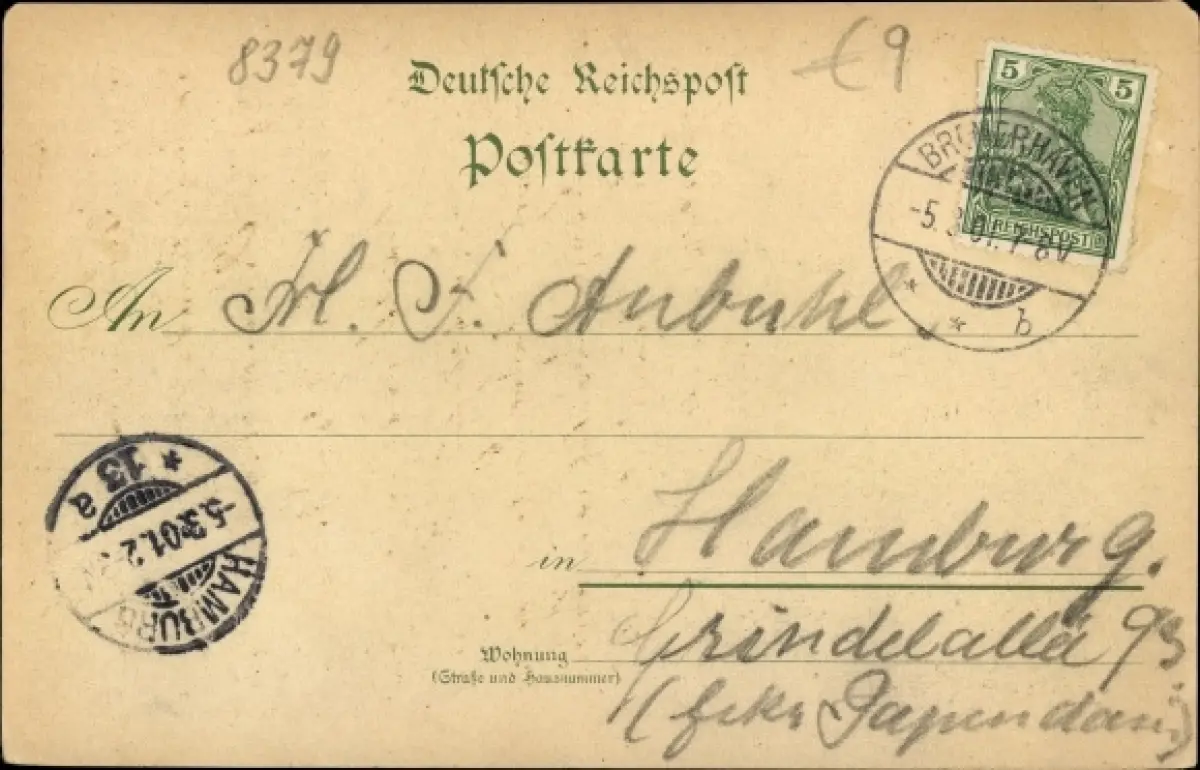 8379
€9
Deutsche Reichspost
Postkarte
5 5
REICHSPOST
BREMERHAVEN
-5.3.01. 7-8V
* * b
An Frl. F. Aubuhl
* 13 a
-5.3.01.2
HAMBURG
in Hamburg.
Wohnung Grindelallee 93
(Straße und Hausnummer)
(Ecke Papendam)